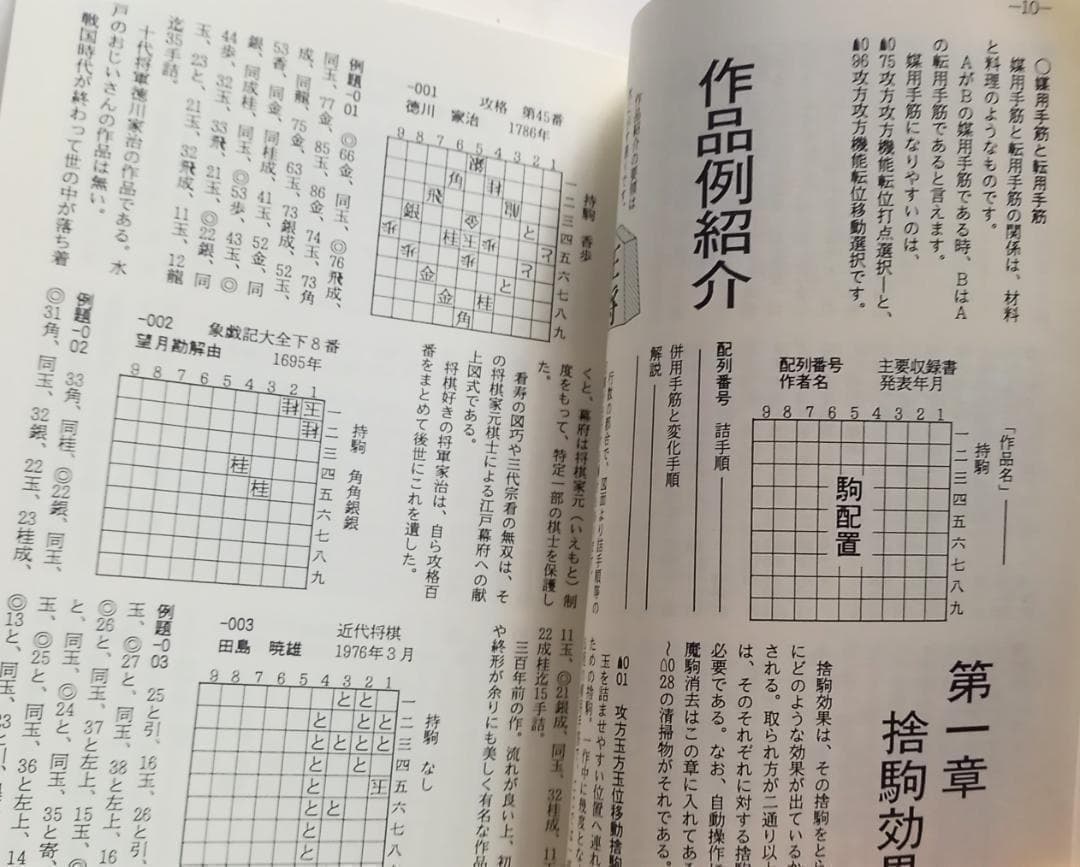 —10—
○媒用手筋と転用手筋
媒用手筋と転用手筋の関係は、材料
と料理のようなものです。
AがBの媒用手筋である時、BはA
の転用手筋であると言えます。
媒用手筋になりやすいのは、
075攻方攻方機能転位打点選択—と、
096攻方攻方機能転位移動選択です。
作品例紹介
作品紹介の要領は
「作品名」
持駒
主要収録書
発表年月
配列番号
作者名
9 8 7 6 5 4 3 2 1
一二三四五六七八九
駒配置
配列番号 詰手順
併用手筋と変化手順
解説
第一章
捨駒効果
捨駒効果は、その捨駒をと
にどのような効果が出ているか
される。取られ方が二通り以
は、そのそれぞれに対する捨駒
必要である。なお、自動操作に
魔駒消去はこの章に入れてある
〜028の清掃物がそれである。
01 攻方玉方玉位移動捨駒
玉を詰ませやすい位置へ連れ
ための捨駒。一作中に幾度とな
-001 攻格 第45番
徳川 家治 1786年
9 8 7 6 5 4 3 2 1
一二三四五六七八九
持駒 香歩
例題-001 ◎66金、同玉、◎76飛成、
同玉、77金、85玉、86金、74玉、73角
成、同龍、75金、63玉、73銀成、52玉、
53香、同金、同桂成、41玉、52金、同
銀、同成桂、同玉、◎53歩、43玉、◎
44歩、32玉、33飛、21玉、◎22銀、同
玉、23と、21玉、32飛成、11玉、12龍
迄35手詰。
十代将軍徳川家治の作品である。水
戸のおじいさんの作品は無い。
戦国時代が終わって世の中が落ち着
くと、幕府は将棋家元（いえもと）制
度をもって、特定一部の棋士を保護し
た。
看寿の図巧や三代宗看の無双は、そ
の将棋家元棋士による江戸幕府への献
上図式である。
将棋好きの将軍家治は、自ら攻格百
番をまとめて後世にこれを遺した。
-002 象戯記大全下8番
望月勘解由 1695年
9 8 7 6 5 4 3 2 1
一二三四五六七八九
持駒 角角銀銀
例題-002 33角、同桂、◎22銀、同玉、
◎31角、同玉、32銀、22玉、23桂成、
11玉、◎21銀成、同玉、32桂成、11
22成桂迄15手詰。
三百年前の作。流れが良い上、初
や終形が余りにも美しく有名な作品
-003 近代将棋
田島 暁雄 1976年3月
9 8 7 6 5 4 3 2 1
一二三四五六七八九
持駒 なし
例題-003 25と引、16玉、26と引、
玉、◎27と、同玉、38と左上、
◎26と、同玉、37と左上、15玉、
と、同玉、◎24と、同玉、35と寄、
玉、◎25と、同玉、36と左上、14
◎13と、同玉、23と引、